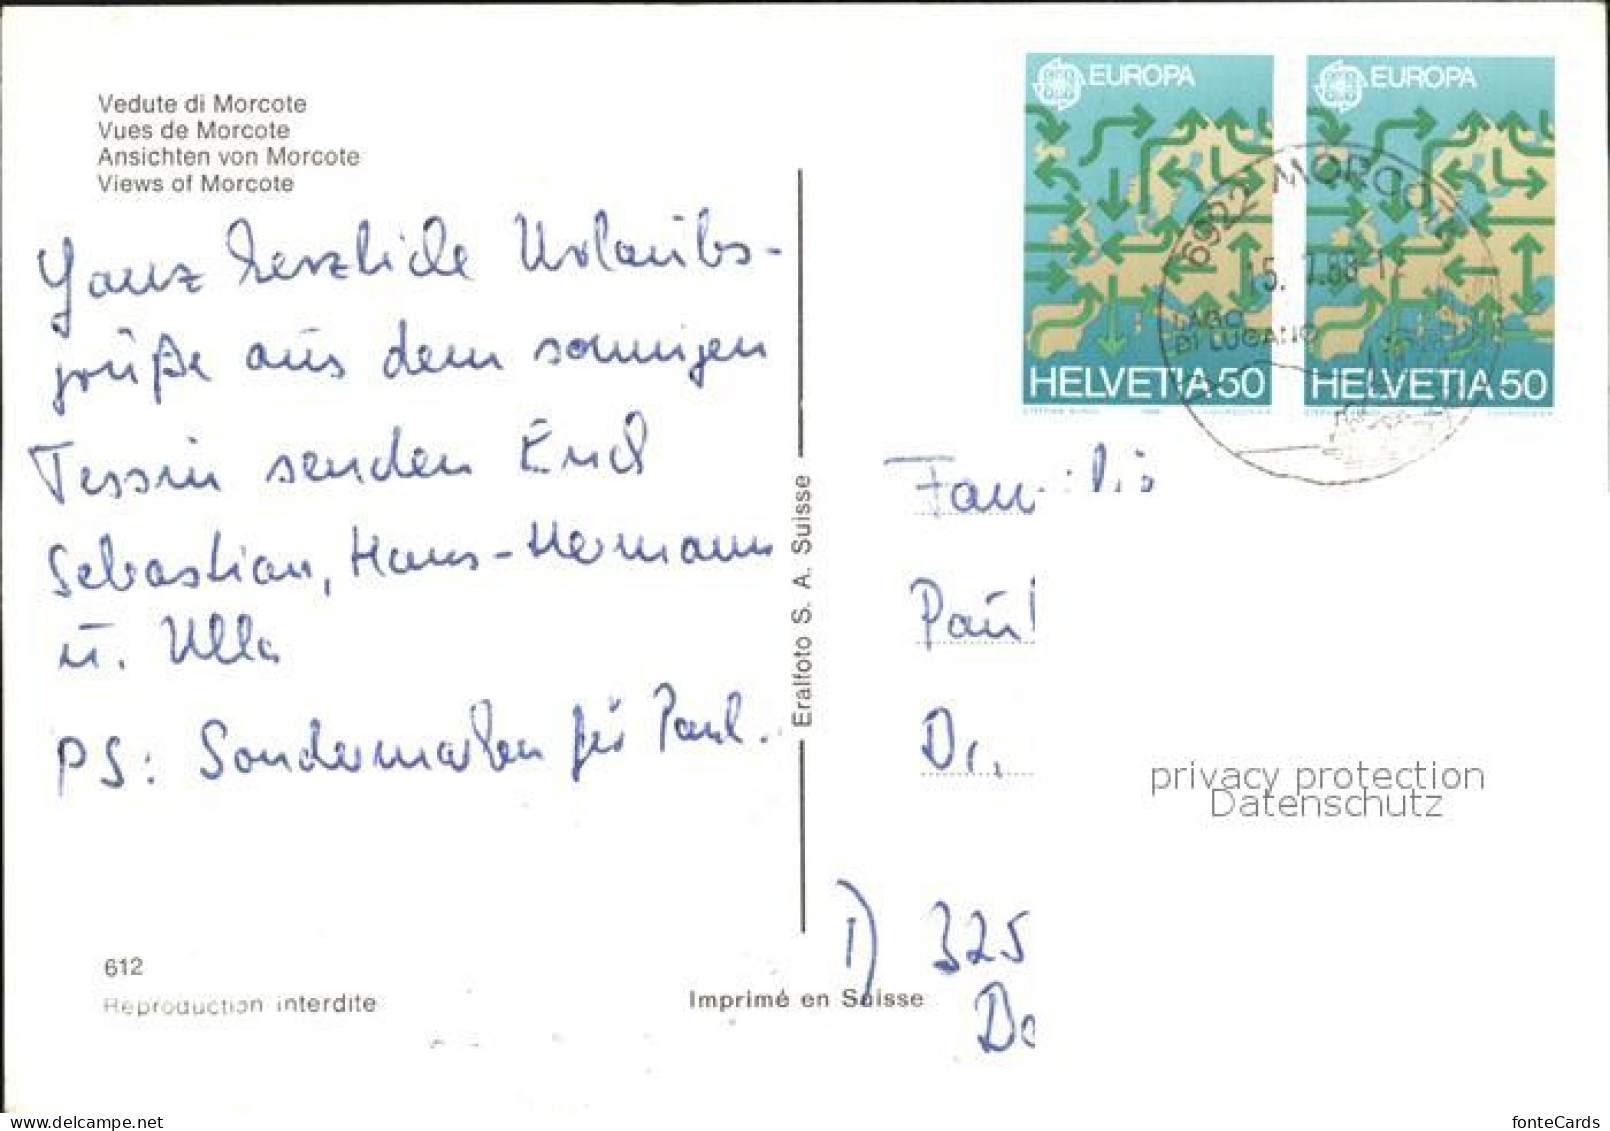 Vedute di Morcote
Vues de Morcote
Ansichten von Morcote
Views of Morcote
Ganz herzliche Urlaubs-
grüße aus dem sonnigen
Tessin senden Euch
Sebastian, Hans-Hermann
u. Ulla
PS: Sondermarken für Paul.
612
Reproduction interdite
Eralfoto S. A. Suisse
Imprimé en Suisse
EUROPA
HELVETIA 50
EUROPA
HELVETIA 50
6922 MORCOTE
LAGO
DI LUGANO
Familie
Paul
Dr.
D 325
privacy protection
Datenschutz
fonteCards
delcampe.net